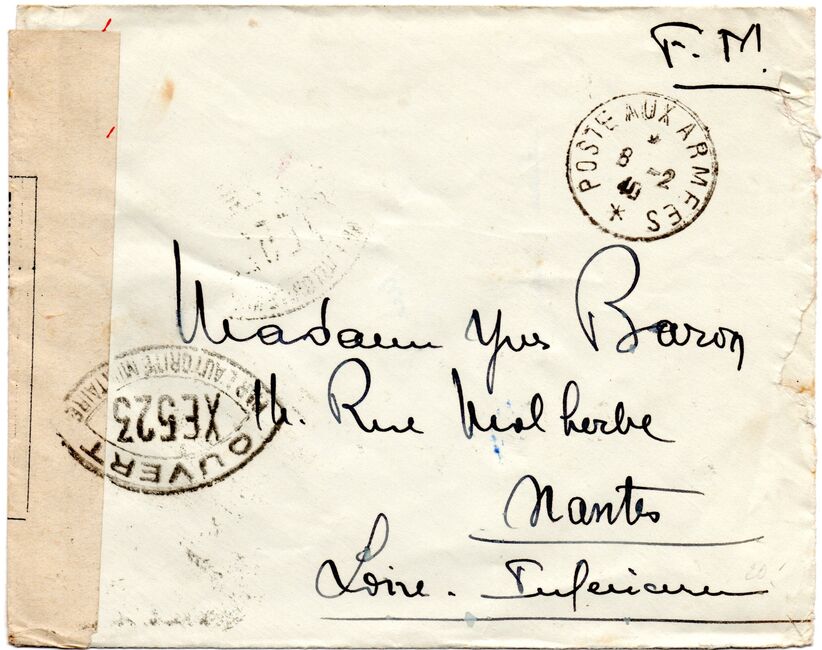 F. M.
* POSTE AUX ARMEES *
8 -2
40
Madame Yves Baron
Rue Malherbe
Nantes
Loire. Inférieure
OUVERT
PAR L'AUTORITÉ MILITAIRE
XE523